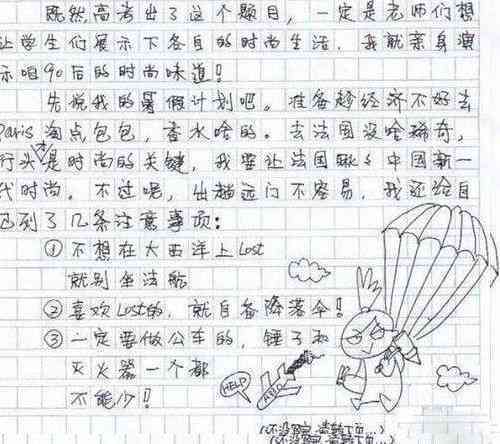 既然高考出了这个题目，一定是老师们想
让学生们展示下各自的时尚生活，我就亲身演
示咱90后的时尚味道！
先说我的暑假计划吧。准备趁经济不好去
Paris淘点包包，香水啥的。去法国没啥稀奇，
行头是时尚的关键，我要让法国瞅瞅中国新一
代时尚。不过呢，出趟远门不容易，我还给自
己列了几条注意事项：
①不想在大西洋上Lost
就别坐法航
②喜欢Lost的，就自备降落伞！
③一定要做公车的，锤子和
灭火器一个都
不能少！
HELP
(还没写完，请翻下页...)
(还没写完，请翻下页...)